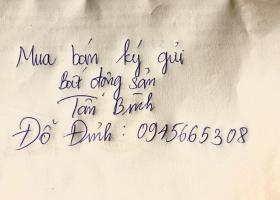 Mua bán ký gửi
Bất động sản
Tân Bình
Đỗ Đình : 0945665308